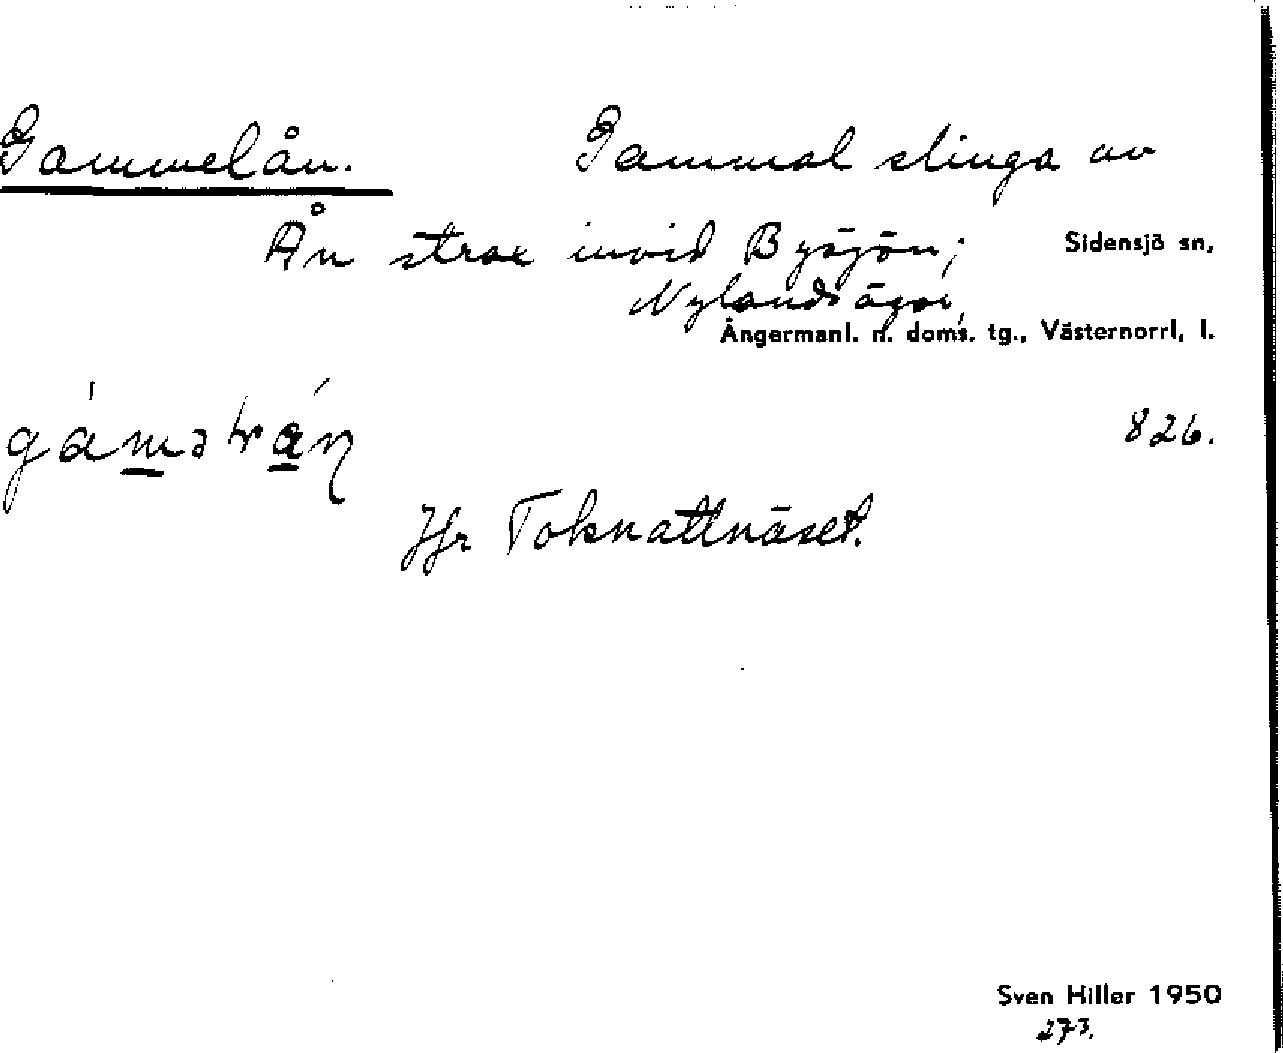 Gammelån. Gammal slinga av
Ån strax invid Bysjön;
Sidensjö sn,
Nylands ägor,
Ångermanl. n. doms. tg., Västernorrl. l.
826.
Jfr Toknattnäset.
Sven Hiller 1950
273.